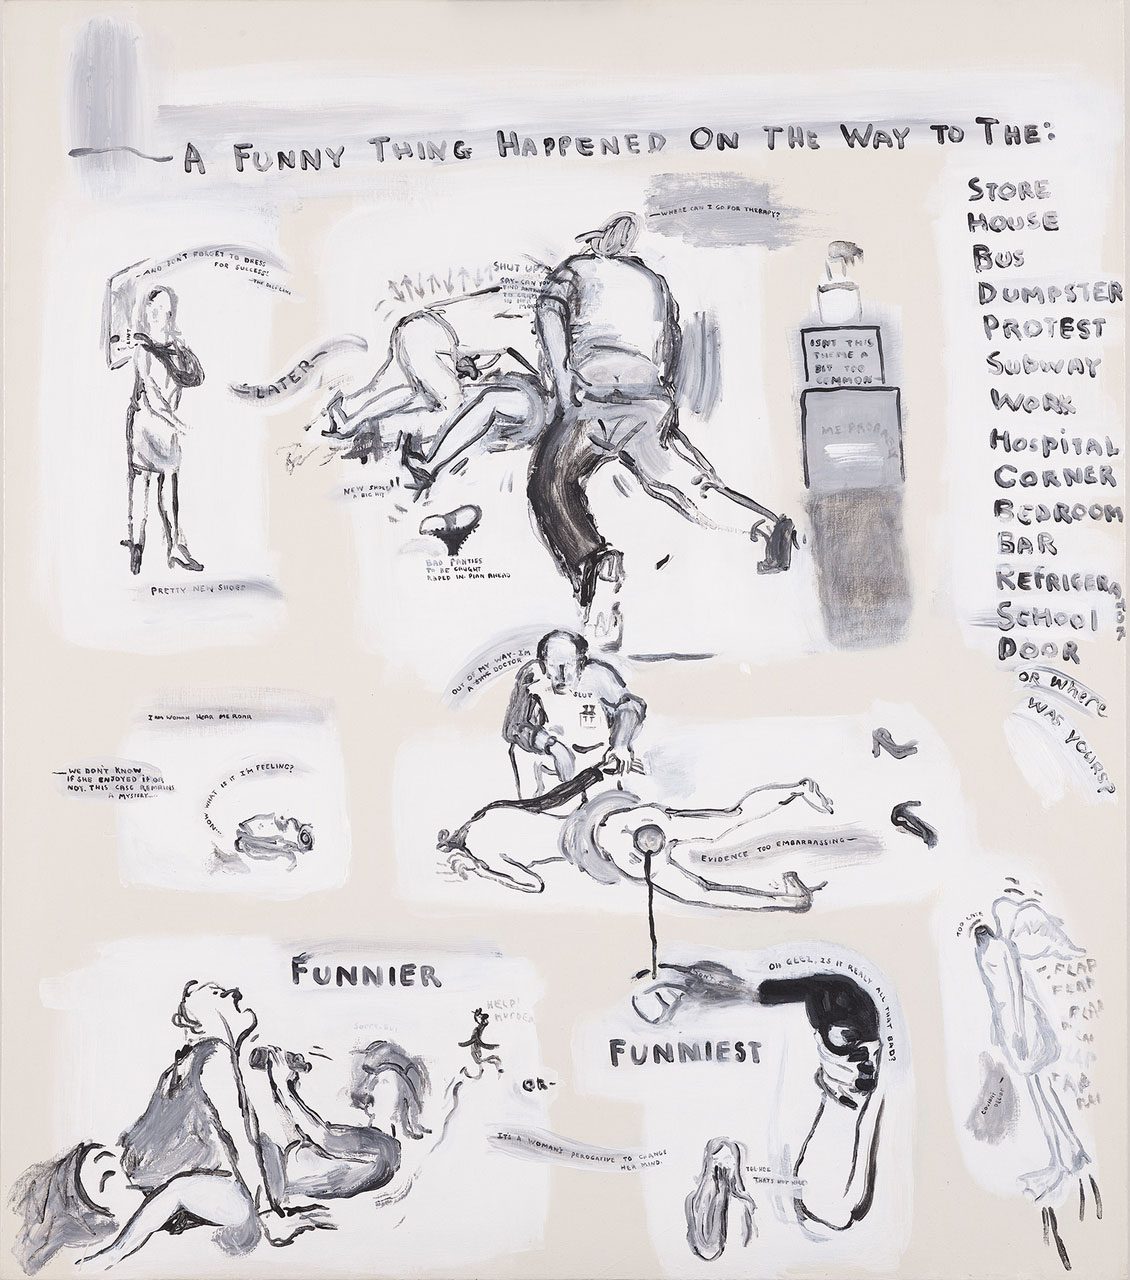 A FUNNY THING HAPPENED ON THE WAY TO THE:
STORE
HOUSE
BUS
DUMPSTER
PROTEST
SUBWAY
WORK
HOSPITAL
CORNER
BEDROOM
BAR
REFRIGERATOR
SCHOOL
DOOR
OR WHERE
WAS YOURS?
AND DON'T FORGET TO DRESS
FOR SUCCESS!
PRETTY NEW SHOES
LATER
—WHERE CAN I GO FOR THERAPY?
SHUT UP
SAY-CAN YOU
FIND ANYTHING
TO CRAM
IN HER
NEW SHOES
A BIG HIT
BAD PANTIES
TO BE CAUGHT
RAPED IN-PLAN AHEAD
ISNT THIS
THEME A
BIT TOO
COMMON—
OUT OF MY WAY-IM
A DOCTOR
SLUT
EVIDENCE TOO EMBARRASSING—
I AM WOMAN HEAR ME ROAR
—WE DON'T KNOW
IF SHE ENJOYED IT OR
NOT. THIS CASE REMAINS
A MYSTERY—
...NOW WHAT IS IT I'M FEELING?
FUNNIER
HELP!
MURDER
OR-
ITS A WOMAN'S PEROGATIVE TO CHANGE
HER MIND.
FUNNIEST
OH GEEZ, IS IT REALY ALL THAT BAD?
TEE-HEE
THATS NOT NICE!
TOO LATE
FLAP
FLAP
FLAP